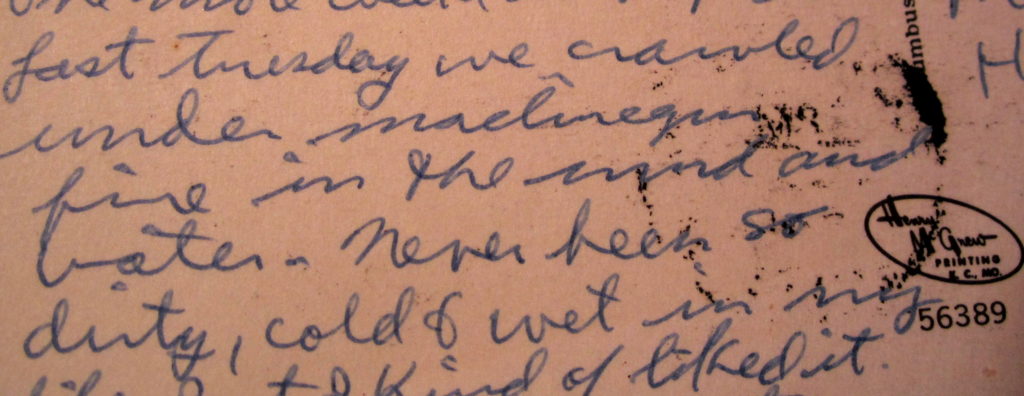 one more
Last Tuesday we crawled
under machinegun
fire in the mud and
water. Never been so
dirty, cold & wet in my
life but I kind of liked it.
umbus
Henry
McGrew
PRINTING
K. C., MO.
56389